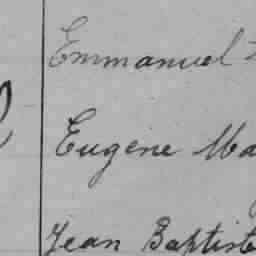 Emmanuel
Eugène Ma
Jean Baptist